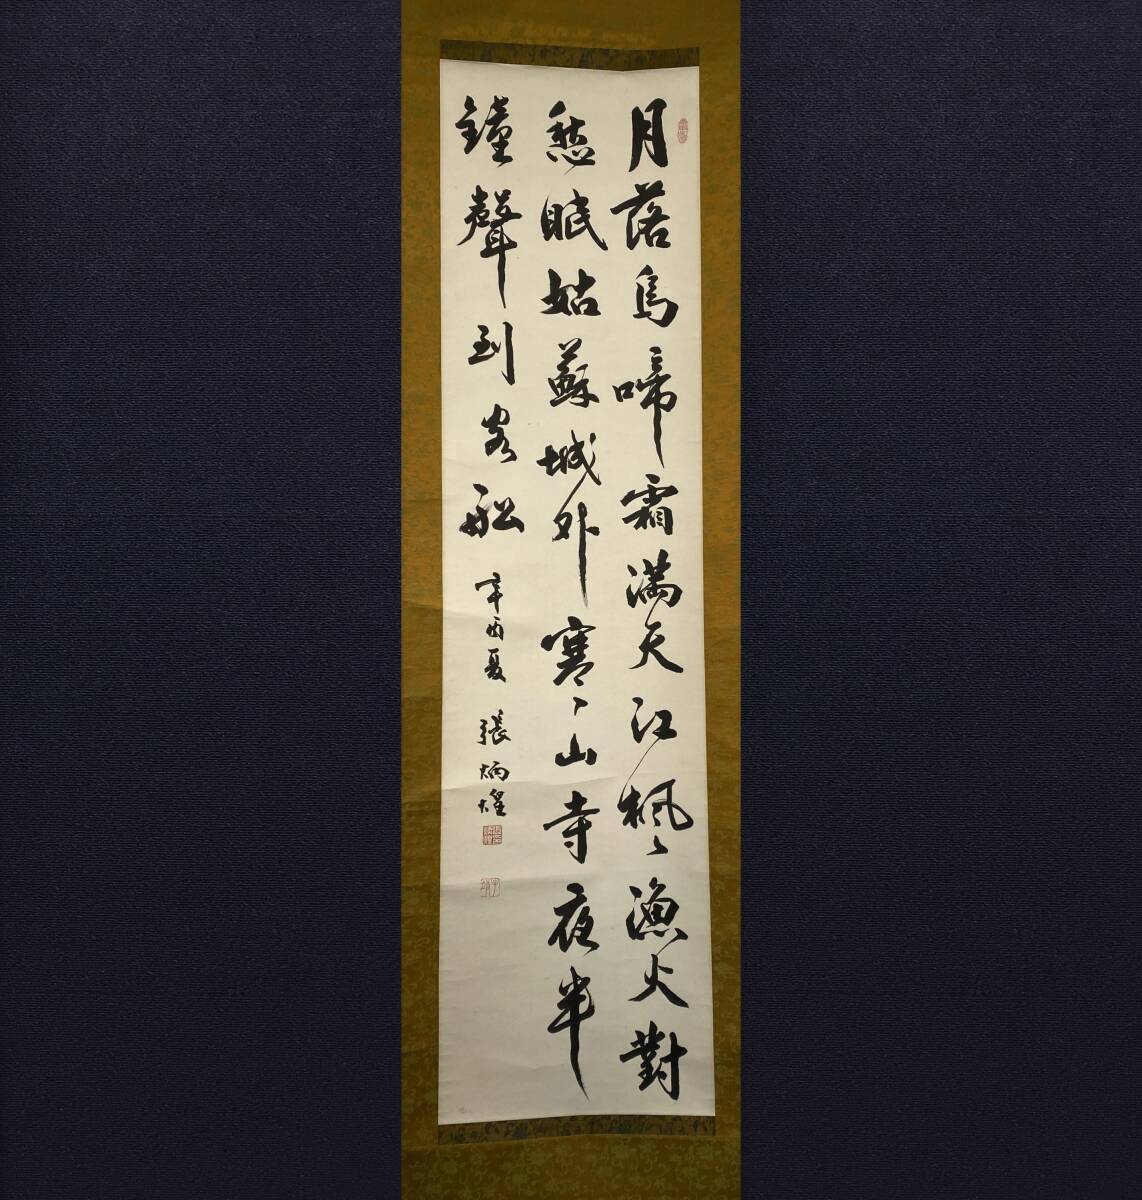 月落烏啼霜滿天江楓漁火對
愁眠姑蘇城外寒山寺夜半
鐘聲到客船辛酉夏張炳煌